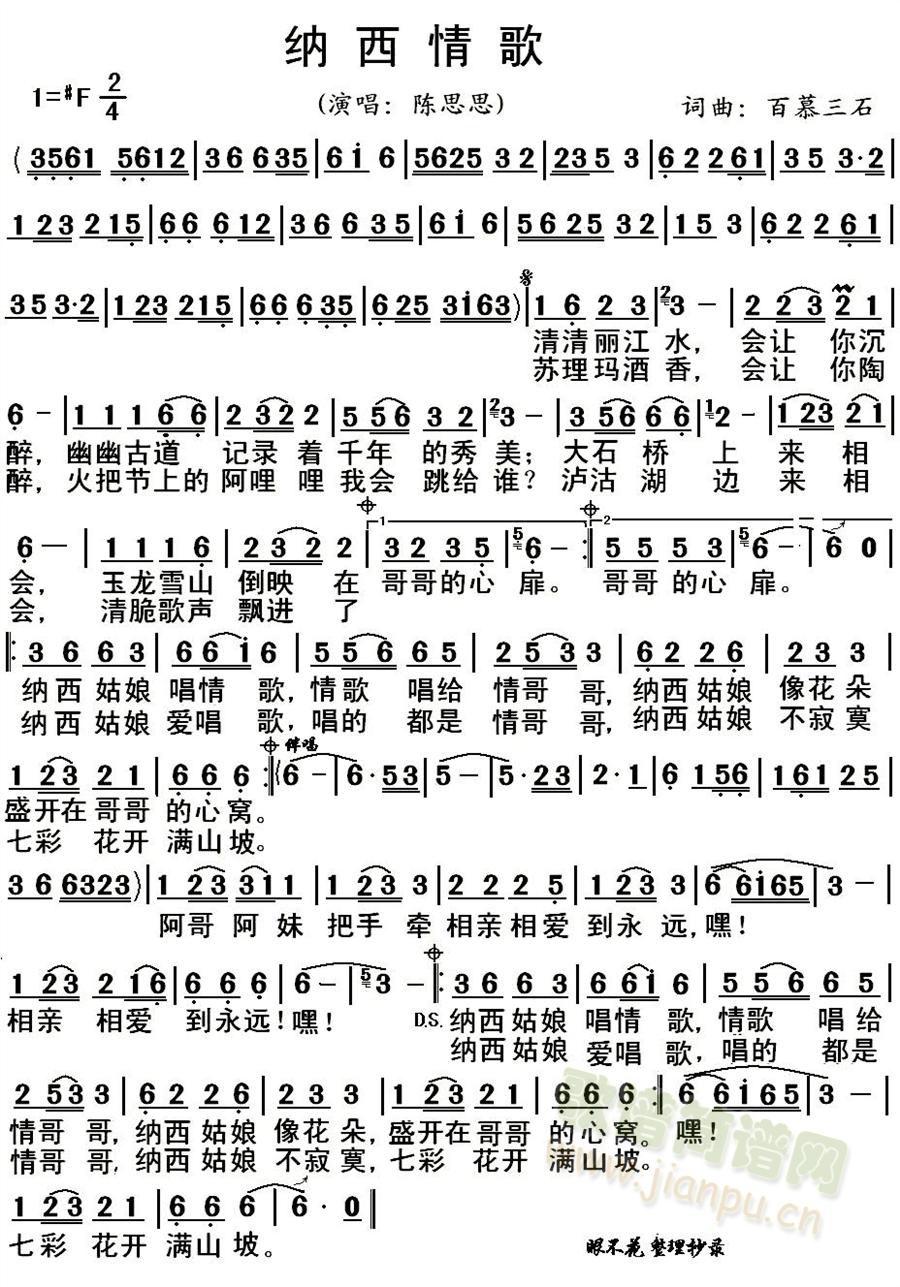 纳西情歌
1=#F 2/4 (演唱：陈思思) 词曲：百慕三石
(3561 5612|36 635|6i 6|5625 32|235 3|62 261|35 3·2|
123 215|66 612|36 635|6i 6|5625 32|15 3|62 261|
35 3·2|123 215|66 635|625 3i63)|16 23|23-|2 23 21|
清清丽江水，会让你沉
苏理玛酒香，会让你陶
6-|11 166|232 2|556 32|23-|356 66|12-|123 21|
醉，幽幽古道 记录着千年的秀美；大石桥上来相
醉，火把节上的阿哩哩我会跳给谁？泸沽湖边来相
6-|11 16|232 2|32 35|56-:|55 53|56-|60|
会，玉龙雪山倒映在哥哥的心扉。哥哥的心扉。
会，清脆歌声飘进了
|:36 63|66i 6|556 65|253 3|62 26|23 3|
纳西姑娘唱情歌，情歌唱给情哥哥，纳西姑娘像花朵
纳西姑娘爱唱歌，唱的都是情哥哥，纳西姑娘不寂寞
伴唱
123 21|66 6:|(6-|6·53|5-|5·23|2·1|6 156|161 25|
盛开在哥哥的心窝。
七彩花开满山坡。
36 6323)|123 311|123 3|22 25|123 3|6 6i65|3-|
阿哥阿妹把手牵相亲相爱到永远，嘿！
123 216|66 6|6-|53-:|36 63|66i 6|556 65|
相亲相爱到永远！嘿！ D.S. 纳西姑娘唱情歌，情歌唱给
纳西姑娘爱唱歌，唱的都是
253 3|62 26|23 3|123 21|66 6:|6 6i65|3-|
情哥哥，纳西姑娘像花朵，盛开在哥哥的心窝。嘿！
情哥哥，纳西姑娘不寂寞，七彩花开满山坡。
123 21|66 6|6·0||
七彩花开满山坡。
眼不花 整理抄录
歌谱简谱网
www.jianpu.cn